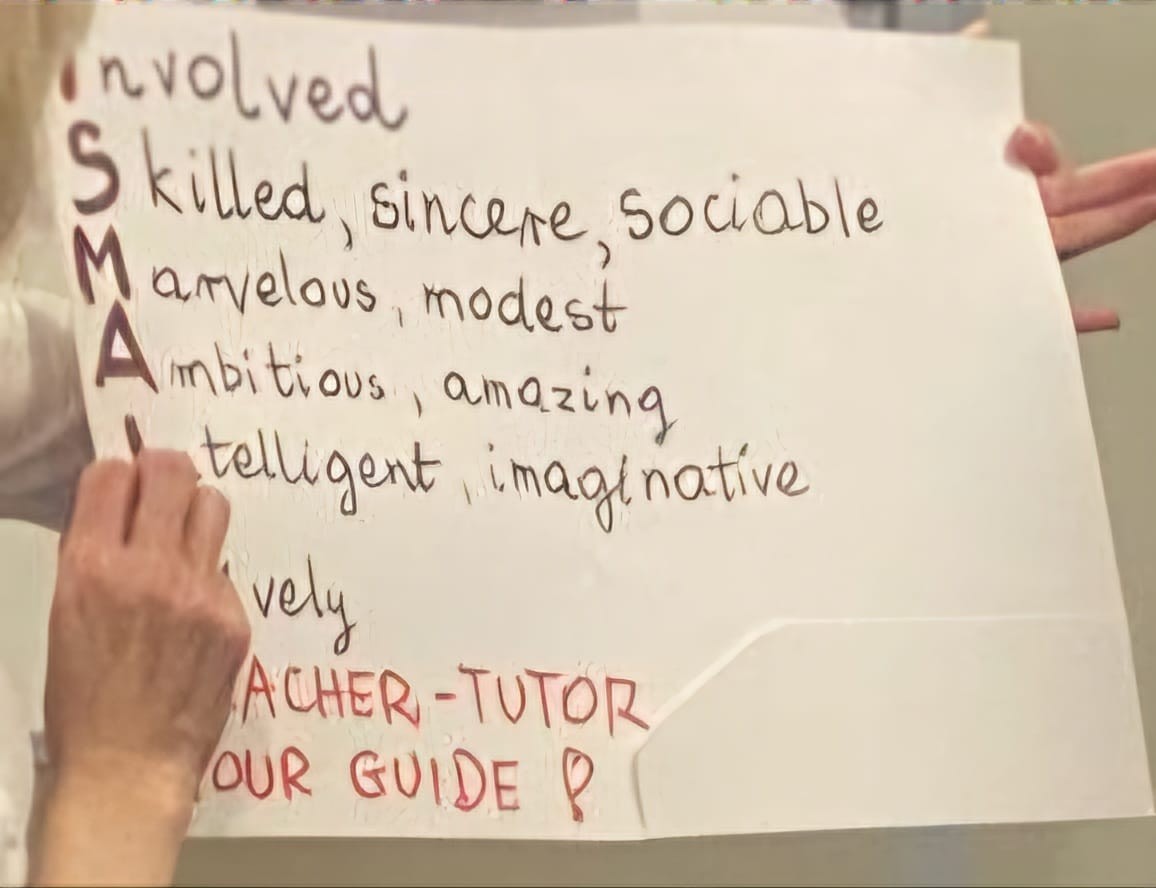 involved
Skilled, sincere, sociable
Marvelous, modest
Ambitious, amazing
telligent, imaginative
vely
ACHER-TUTOR
OUR GUIDE !